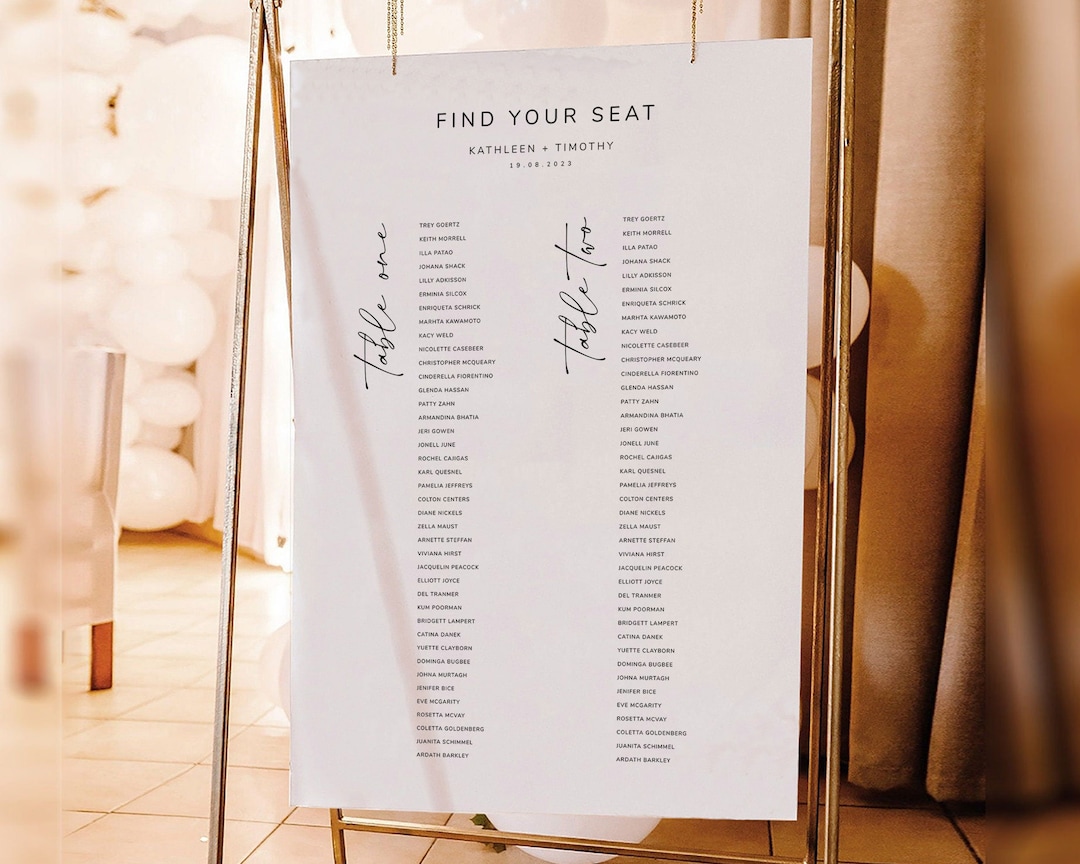 FIND YOUR SEAT
KATHLEEN + TIMOTHY
19.08.2023
table one
TREY GOERTZ
KEITH MORRELL
ILLA PATAO
JOHANA SHACK
LILLY ADKISSON
ERMINIA SILCOX
ENRIQUETA SCHRICK
MARHTA KAWAMOTO
KACY WELD
NICOLETTE CASEBEER
CHRISTOPHER MCQUEARY
CINDERELLA FIORENTINO
GLENDA HASSAN
PATTY ZAHN
ARMANDINA BHATIA
JERI GOWEN
JONELL JUNE
ROCHEL CAJIGAS
KARL QUESNEL
PAMELIA JEFFREYS
COLTON CENTERS
DIANE NICKELS
ZELLA MAUST
ARNETTE STEFFAN
VIVIANA HIRST
JACQUELIN PEACOCK
ELLIOTT JOYCE
DEL TRANMER
KUM POORMAN
BRIDGETT LAMPERT
CATINA DANEK
YUETTE CLAYBORN
DOMINGA BUGBEE
JOHNA MURTAGH
JENIFER BICE
EVE MCGARITY
ROSETTA MCVAY
COLETTA GOLDENBERG
JUANITA SCHIMMEL
ARDATH BARKLEY
table two
TREY GOERTZ
KEITH MORRELL
ILLA PATAO
JOHANA SHACK
LILLY ADKISSON
ERMINIA SILCOX
ENRIQUETA SCHRICK
MARHTA KAWAMOTO
KACY WELD
NICOLETTE CASEBEER
CHRISTOPHER MCQUEARY
CINDERELLA FIORENTINO
GLENDA HASSAN
PATTY ZAHN
ARMANDINA BHATIA
JERI GOWEN
JONELL JUNE
ROCHEL CAJIGAS
KARL QUESNEL
PAMELIA JEFFREYS
COLTON CENTERS
DIANE NICKELS
ZELLA MAUST
ARNETTE STEFFAN
VIVIANA HIRST
JACQUELIN PEACOCK
ELLIOTT JOYCE
DEL TRANMER
KUM POORMAN
BRIDGETT LAMPERT
CATINA DANEK
YUETTE CLAYBORN
DOMINGA BUGBEE
JOHNA MURTAGH
JENIFER BICE
EVE MCGARITY
ROSETTA MCVAY
COLETTA GOLDENBERG
JUANITA SCHIMMEL
ARDATH BARKLEY